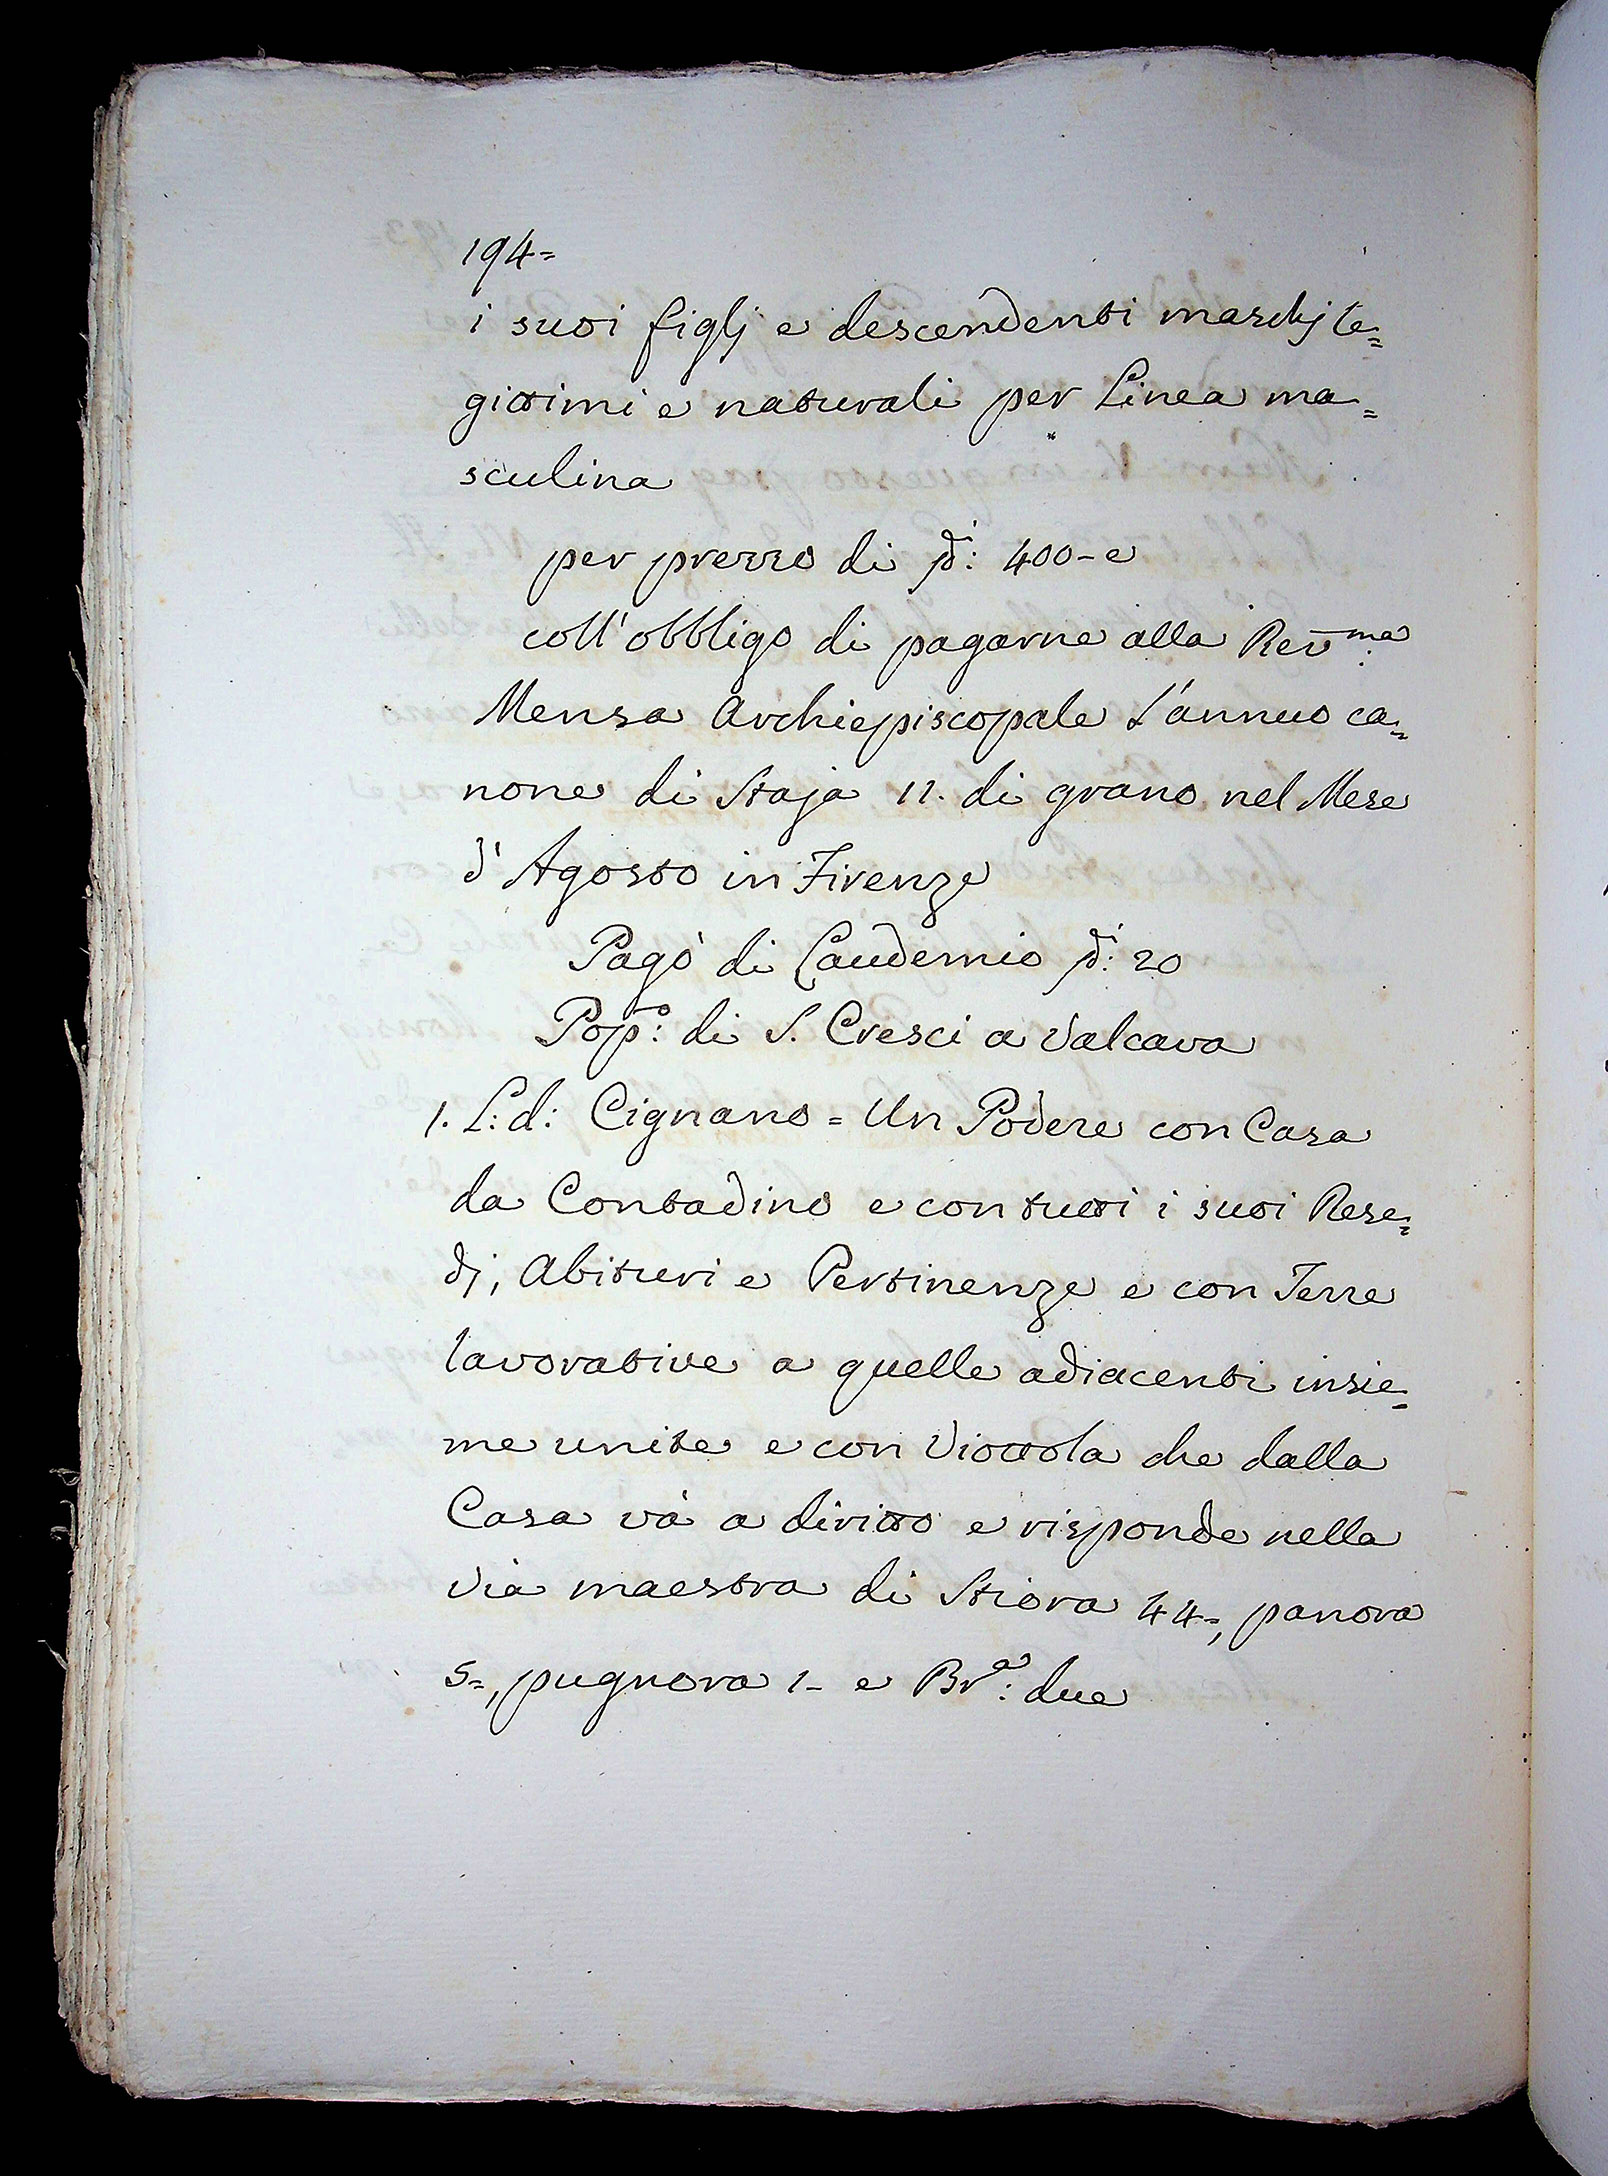 194=
i suoi figlj e descendenti maschj le=
gittimi e naturali per Linea ma=
sculina
per prezzo di 400- e
coll'obbligo di pagarne alla Rev̅ᵐᵃ:
Mensa Archiepiscopale l'annuo ca=
none di Staja 11. di grano nel Mese
d'Agosto in Firenze
Pagò di Laudemio 20
Popᵒ: di S. Cresci a Valcava
1. L: d: Cignano = Un Podere con Casa
da Contadino e con tutti i suoi Rese=
dj, Abituri e Pertinenze e con Terre
lavorative a quelle adiacenti insie=
me unite e con Viottola che dalla
Casa và a diritto e risponde nella
Via maestra di Stiora 44=, panora
5=, pugnora 1- e Brᵃ: due